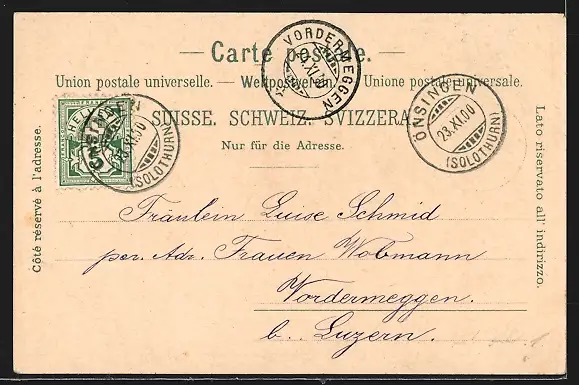 Carte postale.
VORDERMEGGEN
XI.00
Union postale universelle. — Weltpostverein. — Unione postale universale.
SUISSE. SCHWEIZ. SVIZZERA.
Nur für die Adresse.
HELVETIA
5
23.XI.00
(SOLOTHURN)
ÖNSINGEN
23.XI.00
(SOLOTHURN)
Côté réservé à l'adresse.
Lato riservato all' indirizzo.
Fräulein Luise Schmid
per. Adr. Frauen Wobmann
Vordermeggen.
b. Luzern.